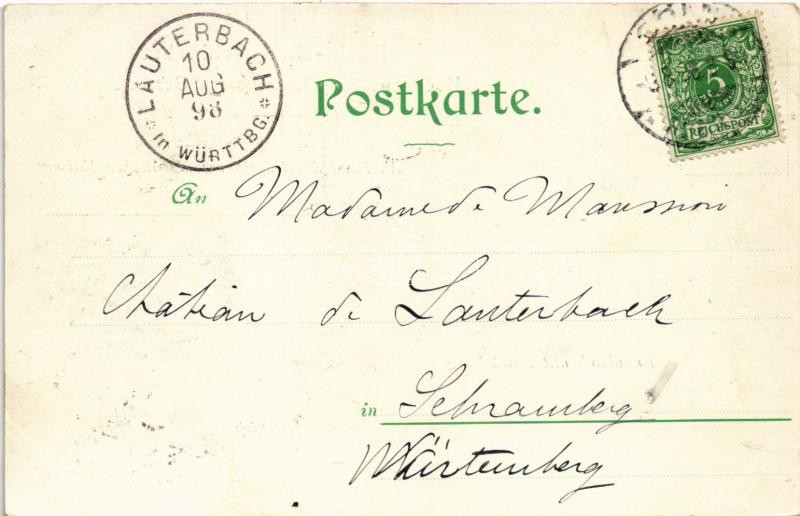 LAUTERBACH
10
AUG
98
* in WÜRTTBG. *
Postkarte.
5
REICHSPOST
An Madame de Maussion
Château de Lauterbach
in Schramberg
Würtemberg